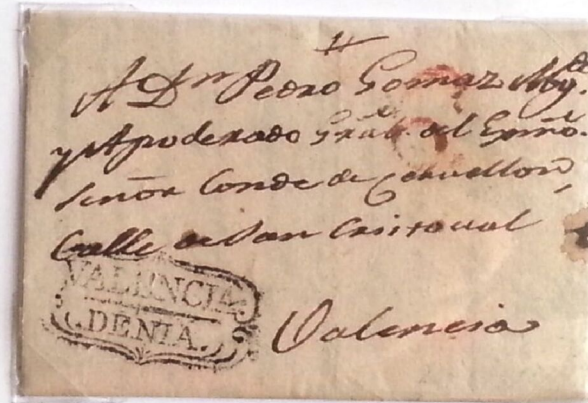 A Dn Pedro Gomaz May.
y Apoderado Gral. del Exmo.
Señor Conde de Cervellon,
Calle de San Cristoval
VALENCIA
DENIA.
Valencia